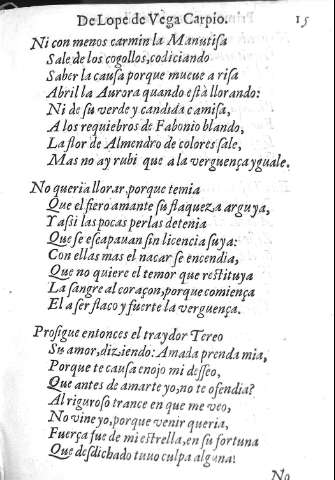 De Lope de Vega Carpio. 15
Ni con menos carmin la Manutisa
Sale de los cogollos, codiciando
Saber la causa porque mueue a risa
Abril la Aurora quando està llorando:
Ni de su verde y candida camisa,
A los requiebros de Fabonio blando,
La flor de Almendro de colores sale,
Mas no ay rubi que a la verguença yguale.
No queria llorar, porque temia
Que el fiero amante su flaqueza arguya,
Y assi las pocas perlas detenia
Que se escapauan sin licencia suya:
Con ellas mas el nacar se encendia,
Que no quiere el temor que restituya
La sangre al coraçon, porque comiença
El a ser flaco y fuerte la verguença.
Prosigue entonces el traydor Tereo
Su amor, diziendo: Amada prenda mia,
Porque te causa enojo mi desseo,
Que antes de amarte yo, no te ofendia?
Al riguroso trance en que me veo,
No vine yo, porque venir queria,
Fuerça fue de mi estrella, en su fortuna
Que desdichado tuuo culpa alguna?
No